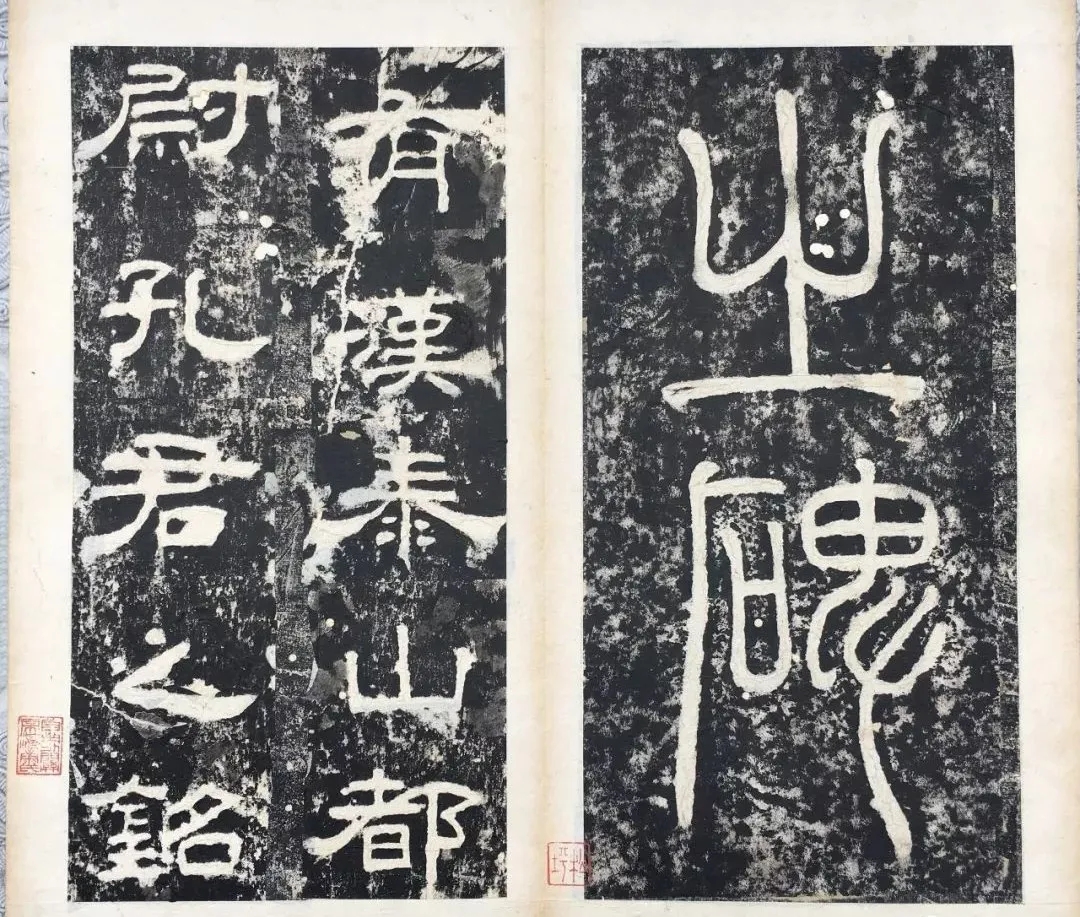 之碑
有漢泰山都
尉孔君之銘